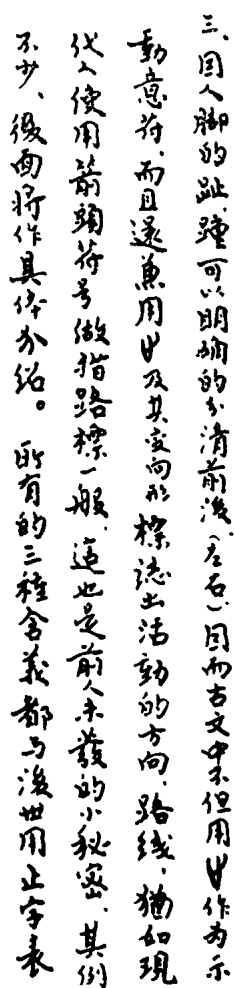 三、因人脚的趾、踵可以明确的分清前後、(左右)、因而古文中不但用㞢作为示
動意符、而且還兼用㞢及其变向形標誌出活動的方向、路线、猶如現
代人使用箭頭符号做指路標一般、這也是前人未發的小秘密、其例
不少、後面將作具体介紹。 所有的三種含義都与後世用止字表